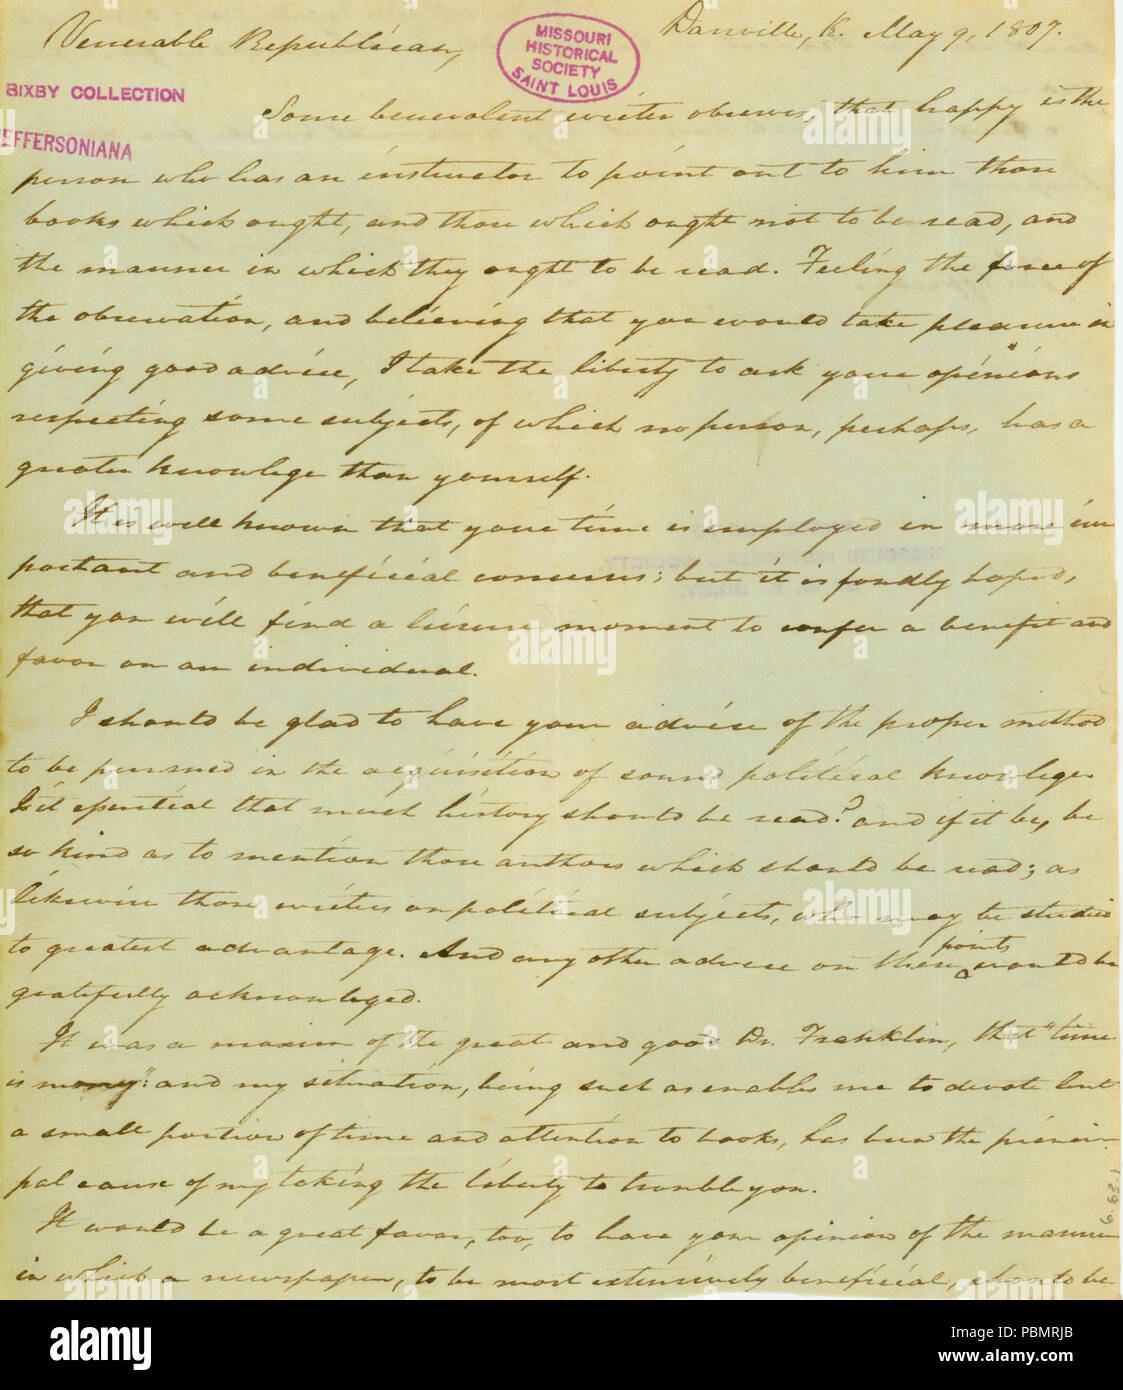 Danville, K. May 9, 1807.
Venerable Republican,
MISSOURI
HISTORICAL
SOCIETY
SAINT LOUIS
BIXBY COLLECTION
EFFERSONIANA
Some benevolent writer observes, that happy is the
person who has an instructor to point out to him those
books which ought, and those which ought not to be read, and
the manner in which they ought to be read. Feeling the force of
the observation, and believing that you would take pleasure in
giving good advice, I take the liberty to ask your opinions
respecting some subjects, of which no person, perhaps, has a
greater knowlege than yourself.
It is well known that your time is employed in more im
portant and beneficial concerns; but it is fondly hoped,
that you will find a leisure moment to confer a benefit and
favor on an individual.
I should be glad to have your advice of the proper method
to be pursued in the acquisition of sound political knowlege.
Is it essential that much history should be read? and if it be, be
so kind as to mention those authors which should be read; as
likewise those writers on political subjects, who may be studied
to greatest advantage. And any other advice on these points would be
gratefully acknowleged.
It was a maxim of the great and good Dr. Franklin, that "time
is money": and my situation, being such as enables me to devote but
a small portion of time and attention to books, has been the princi-
pal cause of my taking the liberty to trouble you.
It would be a great favor, too, to have your opinion of the manner
in which a newspaper, to be most extensively beneficial, should be
6.63.1
alamy
a
alamy stock photo
Image ID: PBMRJB
www.alamy.com